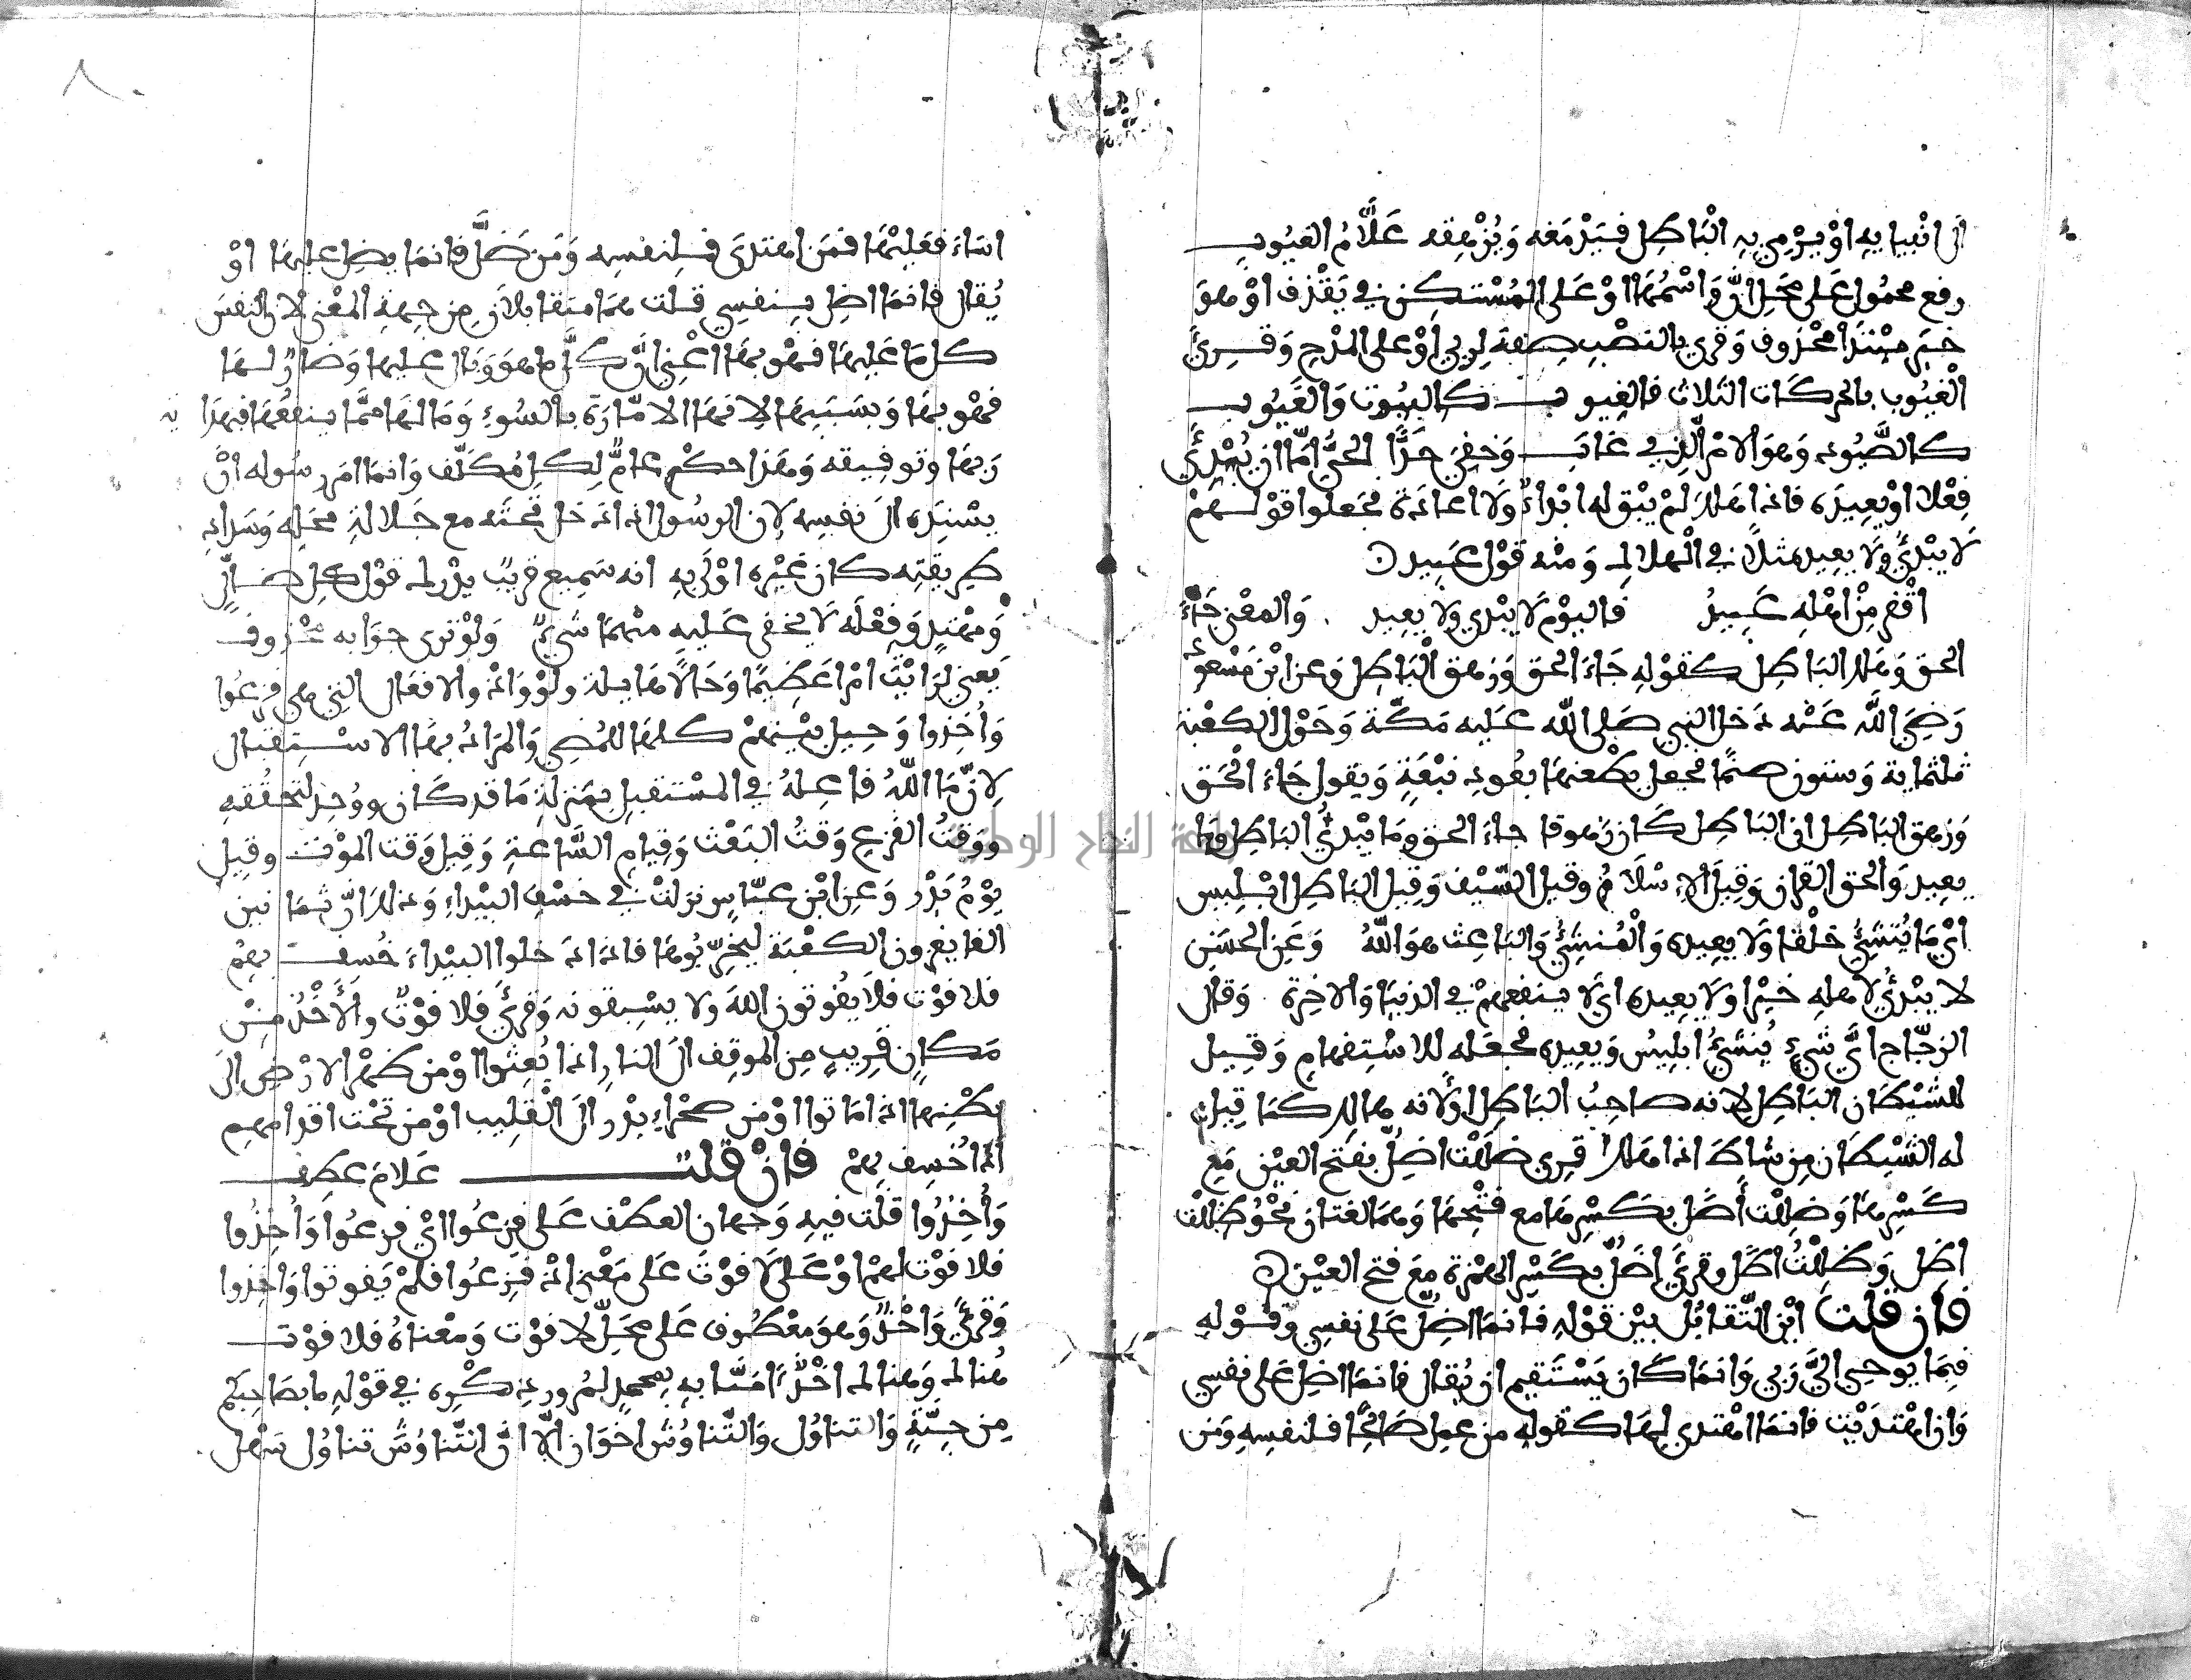 الى انبيائه او يرمي به الباطل فيدمغه ويزهقه علام الغيوب
رفع محمول على محل ان واسمها او على المستكن في يقذف او هو
خبر مبتدا محذوف وقري بالنصب صفة لربي او على المدح وقرئ
الغيوب بالحركات الثلاث فالغيوب كالبيوت والغيوب
كالصيود وهو الامر الذي غاب وخفي جدا الحي اما ان يبدئ
فعلا او يعيده فاذا هلك لم يبق له ابداء ولا اعادة فجعلوا قولهم
لا يبدئ ولا يعيد مثلا في الهلاك ومنه قول عبيد
اقفر من اهله عبيد فاليوم لا يبدي ولا يعيد والمعنى جاء
الحق وهلك الباطل كقوله جاء الحق وزهق الباطل وعن ابن مسعود
رضي الله عنه دخل النبي صلى الله عليه مكة وحول الكعبة
ثلثماية وستون صنما فجعل يطعنها بعود نبعة ويقول جاء الحق
وزهق الباطل ان الباطل كان زهوقا جاء الحق وما يبدئ الباطل وما
يعيد والحق القران وقيل الاسلام وقيل السيف وقيل الباطل ابليس
اي ما ينشئ خلقا ولا يعيده والمنشئ والباعث هو الله وعن الحسن
لا يبدئ لاهله خيرا ولا يعيده اي لا ينفعهم في الدنيا والاخرة وقال
الزجاج اي شيء ينشئ ابليس ويعيده فجعله للاستفهام وقيل
للشيطان الباطل لانه صاحب الباطل او لانه هالك كما قيل
له الشيطان من شاط اذا هلك قري ضللت اضل بفتح العين مع
كسرها وضللت اضل بكسرها مع فتحها وهما لغتان نحو ظللت
اظل وظللت اظل وقرئ اضل بكسر الهمزة مع فتح العين
فان قلت اين التقابل بين قوله فانما اضل على نفسي وقوله
فبما يوحي الي ربي وانما كان يستقيم ان يقال فانما اضل على نفسي
وان اهتديت فانما اهتدي لها كقوله من عمل صالحا فلنفسه ومن
اساء فعليها فمن اهتدى فلنفسه ومن ضل فانما يضل عليها او
يقال فانما اضل بنفسي قلت هما متقابلان من جهة المعنى لان النفس
كل ما عليها فهو بها اعني ان كل ما هو وبال عليها وضار لها
فهو بها وبسببها لانها الامارة بالسوء وما لها مما ينفعها فبهداية
ربها وتوفيقه وهذا حكم عام لكل مكلف وانما امر رسوله ان
يسنده الى نفسه لان الرسول اذا دخل تحته مع جلالة محله وسداد
طريقته كان غيره اولى به انه سميع قريب يدرك قول كل ضال
ومهتد وفعله لا يخفى عليه منهما شيء ولو ترى جوابه محذوف
يعني لرايت امرا عظيما وحالا هايلة ولو واذ والافعال التي هي فزعوا
واخذوا وحيل بينهم كلها للمضي والمراد بها الاستقبال
لان ما الله فاعله في المستقبل بمنزلة ما قد كان ووجد لتحققه
ووقت الفزع وقت البعث وقيام الساعة وقيل وقت الموت وقيل
يوم بدر وعن ابن عباس نزلت في خسف البيداء وذلك ان ثمانين
الفا يغزون الكعبة ليخربوها فاذا دخلوا البيداء خسف بهم
فلا فوت فلا يفوتون الله ولا يسبقونه وقرئ فلا فوت والاخذ من
مكان قريب من الموقف الى النار اذا بعثوا او من ظهر الارض الى
بطنها اذا ماتوا او من صحراء بدر الى القليب او من تحت اقدامهم
اذا خسف بهم فان قلت علام عطف
واخذوا قلت فيه وجهان العطف على فزعوا اي فزعوا واخذوا
فلا فوت لهم او على لا فوت على معنى اذ فزعوا فلم يفوتوا واخذوا
وقرئ واخذ وهو معطوف على محل لا فوت ومعناه فلا فوت
هناك وهناك اخذ امنا به بمحمد لمرور ذكره في قوله ما بصاحبكم
من جنة والتناول والتناوش اخوان الا ان التناوش تناول سهل